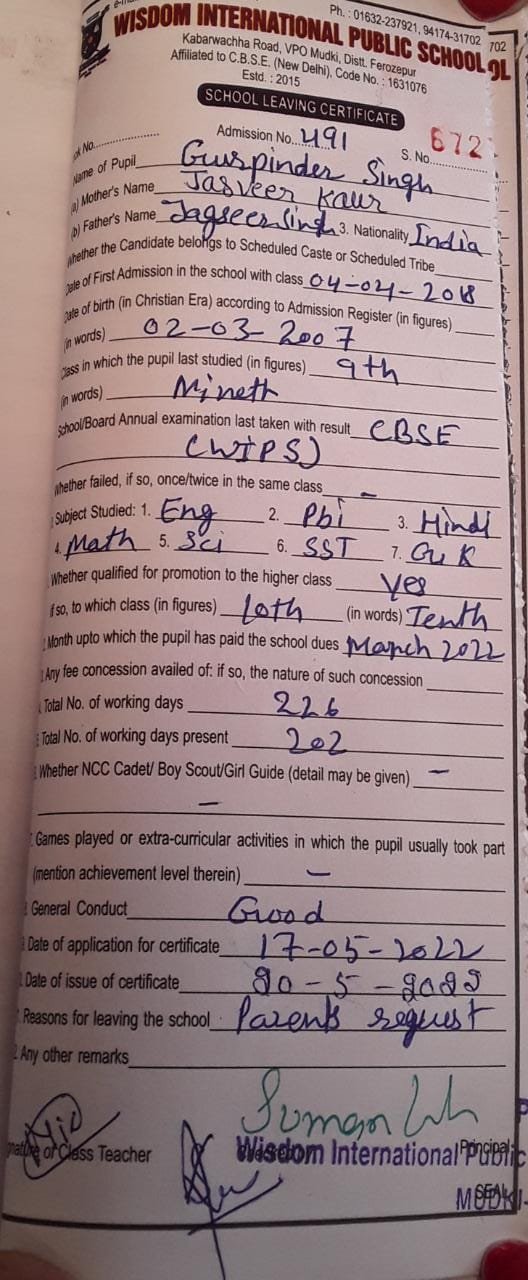 Ph. : 01632-237921, 94174-31702 702
WISDOM INTERNATIONAL PUBLIC SCHOOL OL
Kabarwachha Road, VPO Mudki, Distt. Ferozepur
Affiliated to C.B.S.E. (New Delhi), Code No. : 1631076
Estd. : 2015
SCHOOL LEAVING CERTIFICATE
ok No. Admission No. 491 S. No. 672
Name of Pupil Gurpinder Singh
(a) Mother's Name Jasveer Kaur
(b) Father's Name Jagseer Singh 3. Nationality India
Whether the Candidate belongs to Scheduled Caste or Scheduled Tribe
Date of First Admission in the school with class 04-04-2018
Date of birth (in Christian Era) according to Admission Register (in figures)
(in words) 02-03-2007
Class in which the pupil last studied (in figures) 9th
(in words) Nineth
School/Board Annual examination last taken with result CBSE
(WIPS)
Whether failed, if so, once/twice in the same class -
Subject Studied: 1. Eng 2. Pbi 3. Hindi
4. Math 5. Sci 6. SST 7. G.K
Whether qualified for promotion to the higher class yes
if so, to which class (in figures) 10th (in words) Tenth
Month upto which the pupil has paid the school dues March 2022
Any fee concession availed of: if so, the nature of such concession
Total No. of working days 226
Total No. of working days present 202
Whether NCC Cadet/ Boy Scout/Girl Guide (detail may be given) -
-
Games played or extra-curricular activities in which the pupil usually took part
(mention achievement level therein) -
General Conduct Good
Date of application for certificate 17-05-2022
Date of issue of certificate 20-5-2022
Reasons for leaving the school Parents request
Any other remarks
Signature of Class Teacher Principal
Wisdom International Public
SEAL
MUDKI-